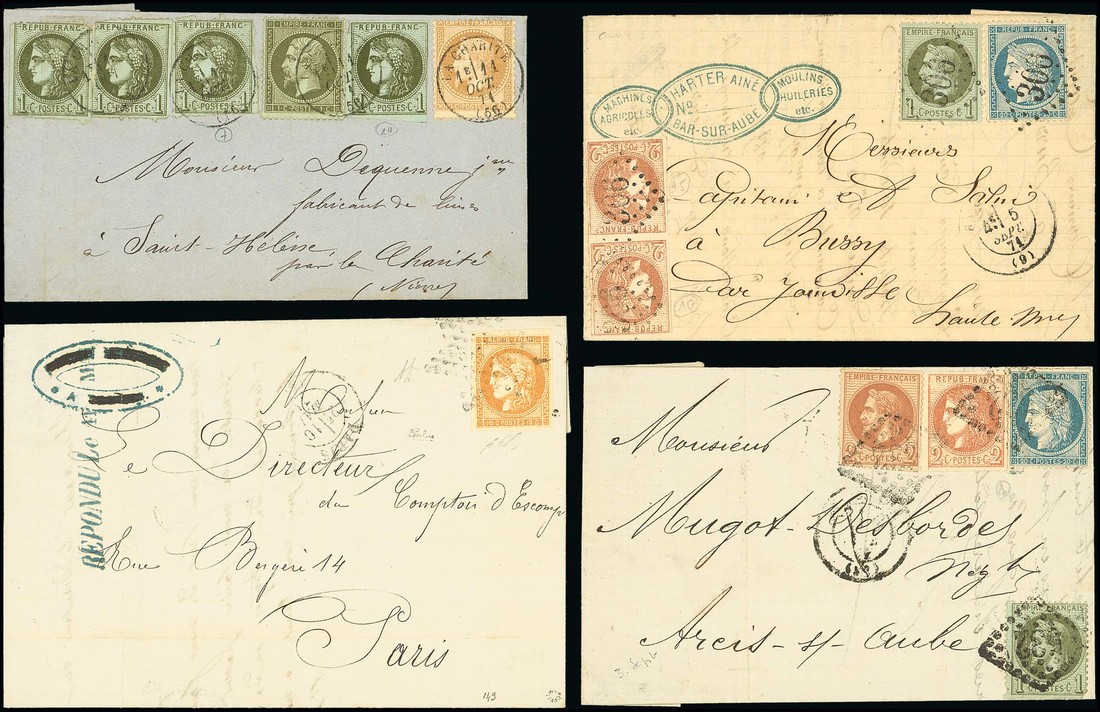 REPUB·FRANC·
1 C·POSTES·C 1
REPUB·FRANC·
1 C·POSTES·C 1
REPUB·FRANC·
1 C·POSTES·C 1
EMPIRE FRANC
1 C·POSTES·C 1
REPUB·FRANC·
1 C·POSTES·C 1
EMPIRE FRANÇAIS
LA CHARITÉ
1E 14
OCT
(56)
Monsieur Dequenne jne
fabricant de limes
à Saint-Hélène
par la Charité
(Nièvre)
MACHINES
AGRICOLES
etc.
HARTER AINÉ
No
BAR-SUR-AUBE
MOULINS
HUILERIES
etc.
EMPIRE FRANÇAIS
1 C·POSTES·C 1
REPUB·FRANC·
20 C·POSTES·20 C
306
306
2 C·POSTES·C 2
REPUB·FRANC
306
2 C·POSTES·C 2
REPUB·FRANC
15
Messieurs
Capitani & Salni
à
Bussy
Par Joinville
Haute Mne
5
SEPT.
71
(9)
REPUB·FRANC
10 C·POSTES·10 C
RÉPONDU Le
Monsieur
Le Directeur
du Comptoir d'Escompte
Rue Bergère 14
Paris
149
EMPIRE FRANÇAIS
2 C·POSTES·C 2
REPUB·FRANC·
2 C·POSTES·C 2
REPUB·FRANC·
20 C·POSTES·20 C
Monsieur
Mugot-Desbordes
Negt
Arcis s/ Aube
EMPIRE FRANÇAIS
1 C·POSTES·C 1